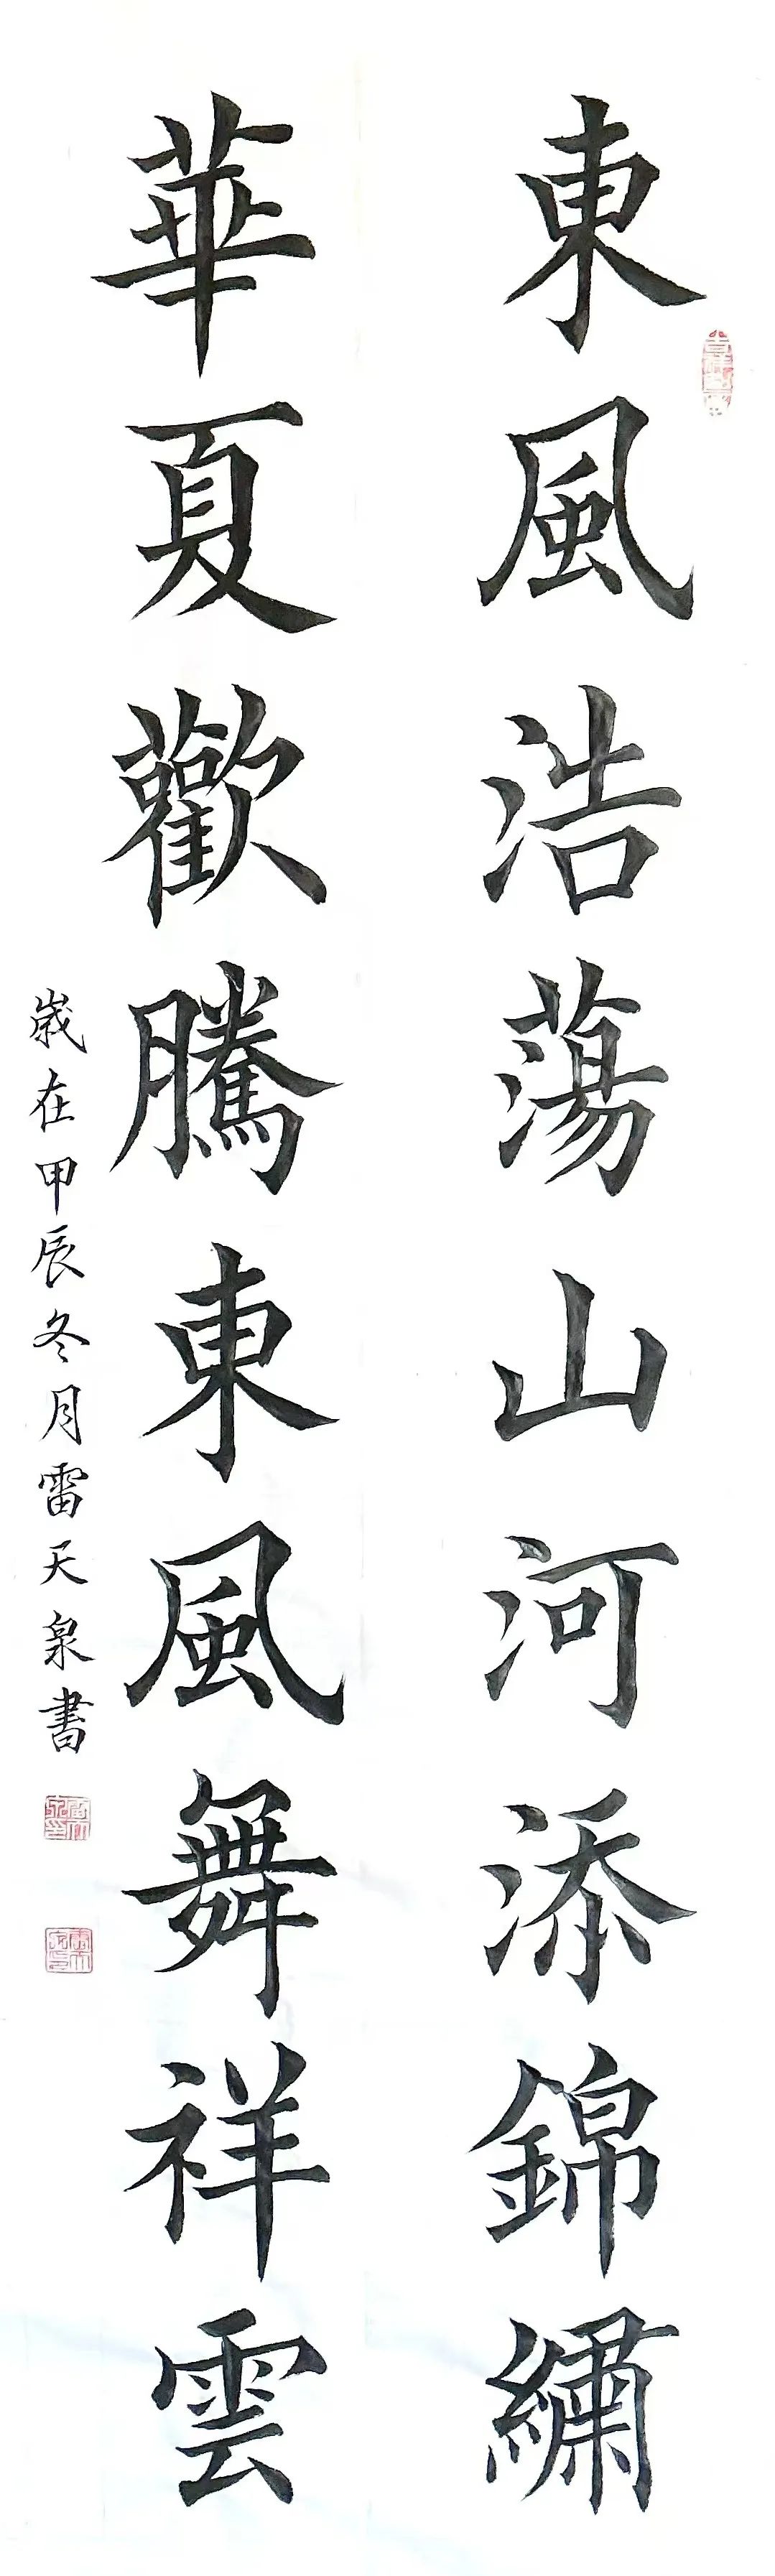 東風浩蕩山河添錦繡
華夏歡騰東風舞祥雲
歲在甲辰冬月雷天泉書